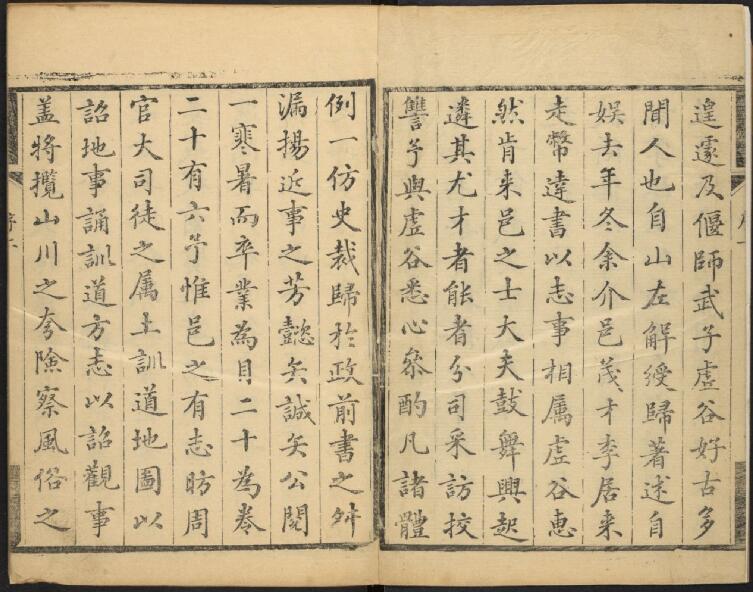 遑遽及偃師武子虛谷好古多
聞人也自山左解綬歸著述自
娱去年冬余介邑茂才李居来
走幣達書以志事相属虛谷惠
然肯来邑之士大夫鼓舞興起
遴其尤才者能者分司采訪挍
讐予與虛谷悉心叅酌凡諸體
例一仿史裁歸於政前書之舛
漏揚近事之芳懿矣誠矣公閱
一寒暑而卒業為目二十為卷
二十有六予惟邑之有志昉周
官大司徒之属土訓道地圖以
詔地事誦訓道方志以詔觀事
盖將攬山川之夸險察風俗之
序